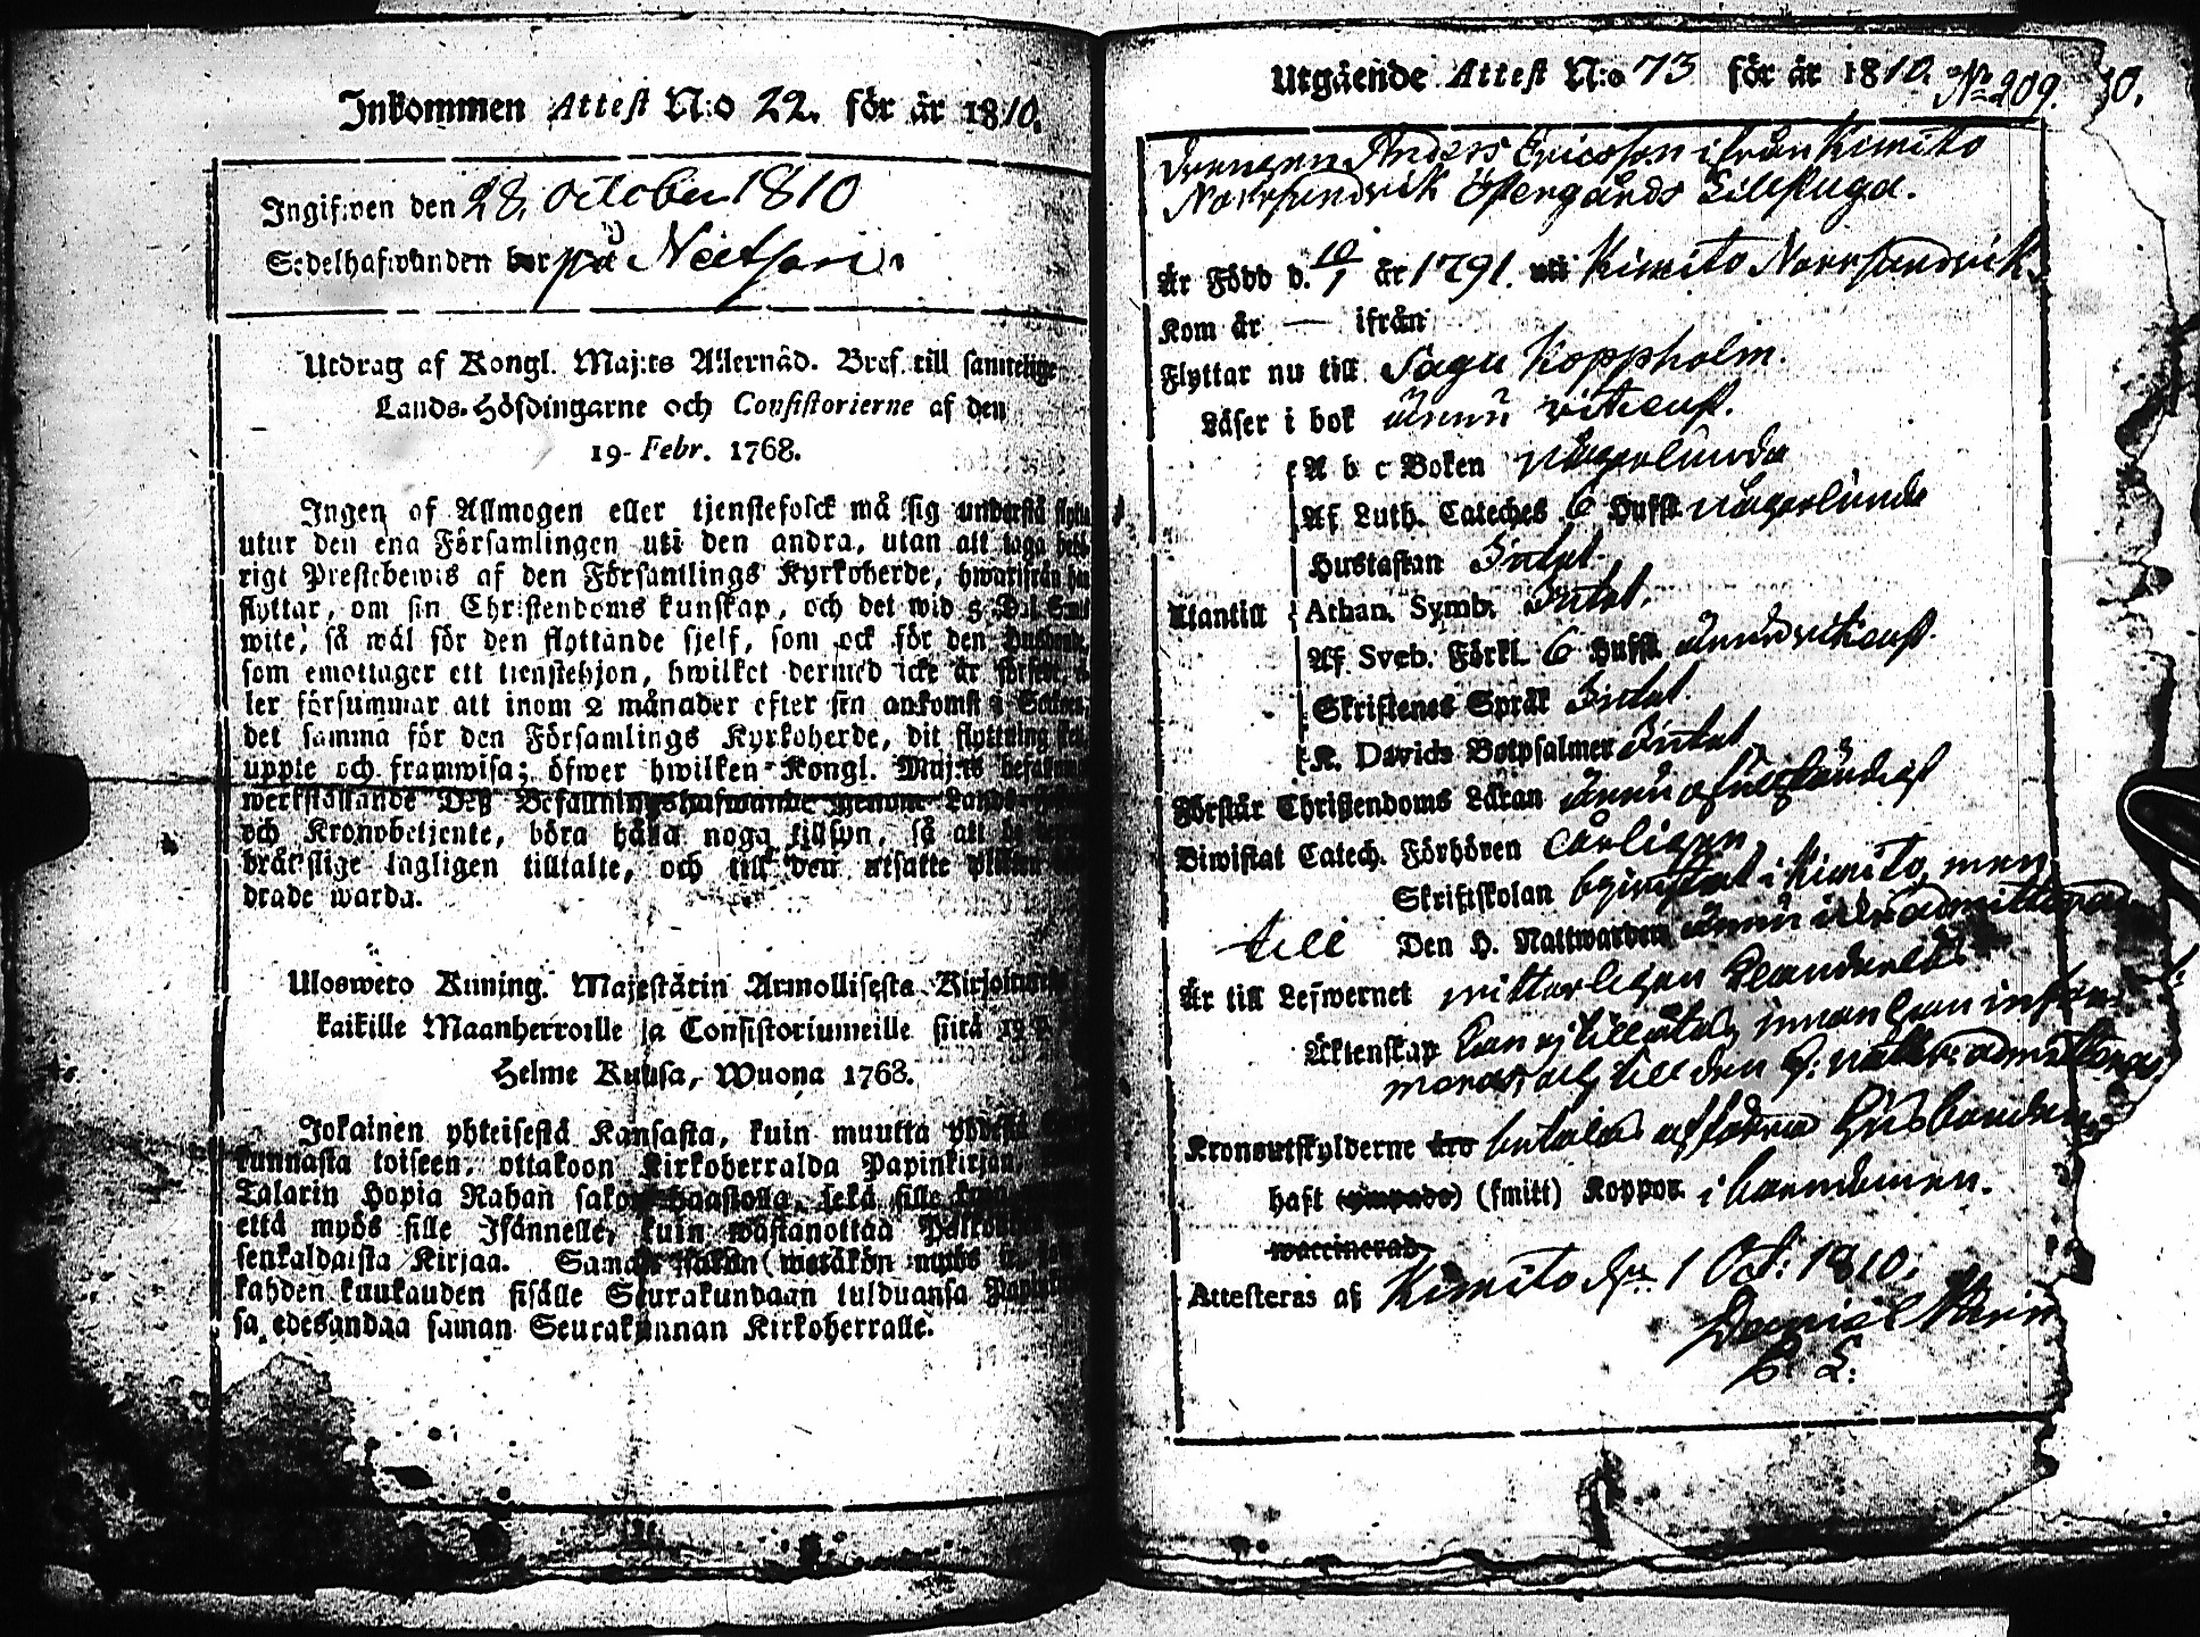 Inkommen Attest N:o 22. för år 1810.
Ingifwen den 28. October 1810
Sedelhafwanden bor på
Utdrag af Kongl. Maj:ts Allernåd. Bref till samtelige
Lands-Höfdingarne och Consistorierne af den
19. Febr. 1768.
Ingen af Allmogen eller tjenstefolck må sig understå flytta
utur den ena Församlingen uti den andra, utan att taga
rigt Prestebewis af den Församlings Kyrkoherde, hwarifrån han
flyttar, om sin Christendoms kunskap, och det wid 5 Dal. Smt
wite, så wäl för den flyttande sjelf, som ock för den Husbonde,
som emottager ett tienstehjon, hwilket dermed icke är försedt,
ler försummar att inom 2 månader efter sin ankomst i
det samma för den Församlings Kyrkoherde, dit flyttning
upple och framwisa; öfwer hwilken Kongl. Maj:ts befallning
werkställande Deß Befallningshafwande genom Lands
och Kronobetjente, böra hålla noga tillsyn, så att
brätslige lagligen tilltalte, och till den utsatte plikten
drade warda.
Ulosweto Kuning. Majestätin Armollisesta Kirjoituxesta
kaikille Maanherroille ja Consistoriumeille siitä 19 p.
Helme Kuusa, Wuona 1768.
Jokainen yhteisestä Kansasta, kuin muutta yhdestä
kunnasta toiseen, ottakoon Kirkoherralda Papinkirjan,
Talarin Hopia Rahan sakon haastolla, sekä sille
että myös sille Isännelle, kuin wastanottaa
senkaldaista Kirjaa. Saman sakon wetäkön myös
kahden kuukauden sisälle Seurakundaan tulduansa
sa edesandaa saman Seurakunnan Kirkoherralle.
Utgående Attest N:o 73 för år 1810. No 209. 30.
Drengen Anders Ericsson ifrån Kimito
Norrsundvik Östergårds
Är Född d. 10/1 år 1791. uti Kimito Norrsundvik
Kom år — ifrån
Flyttar nu till Sagu Koppholm.
Läser i bok ännu
A b c Boken någorlunda
Af Luth. Cateches 6 Hufst. någorlunda
Hustaflan Intet.
Utantill Athan. Symb. Intet.
Af Sveb. Förkl. 6 Hufst. ännu
Skriftenes Språk Intet.
K. Davids Botpsalmer Intet
Förstår Christendoms Läran ännu ofullständigt
Biwistat Catech. Förhören årligen
Skriftskolan bewistat i Kimito, men
till Den H. Nattwarden ännu icke admitterad
Är till Lefwernet witterligen klanderlös
Äktenskap kan ej tillåtas innan han
och till den H: nattv: admitteras
Kronoutskylderne äro betalas af förra Husbonden
haft (ympade) (smitt) Koppor i barndomen.
waccinerad
Attesteras af Kimito d. 1 Oct: 1810.
Daniel